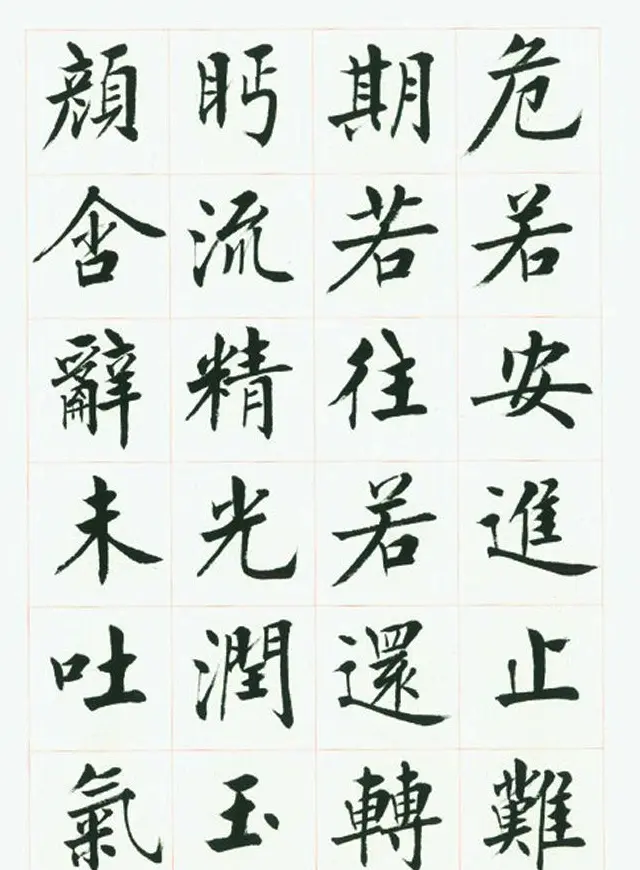 危若安進止難
期若往若還轉
眄流精光潤玉
顔含辭未吐氣